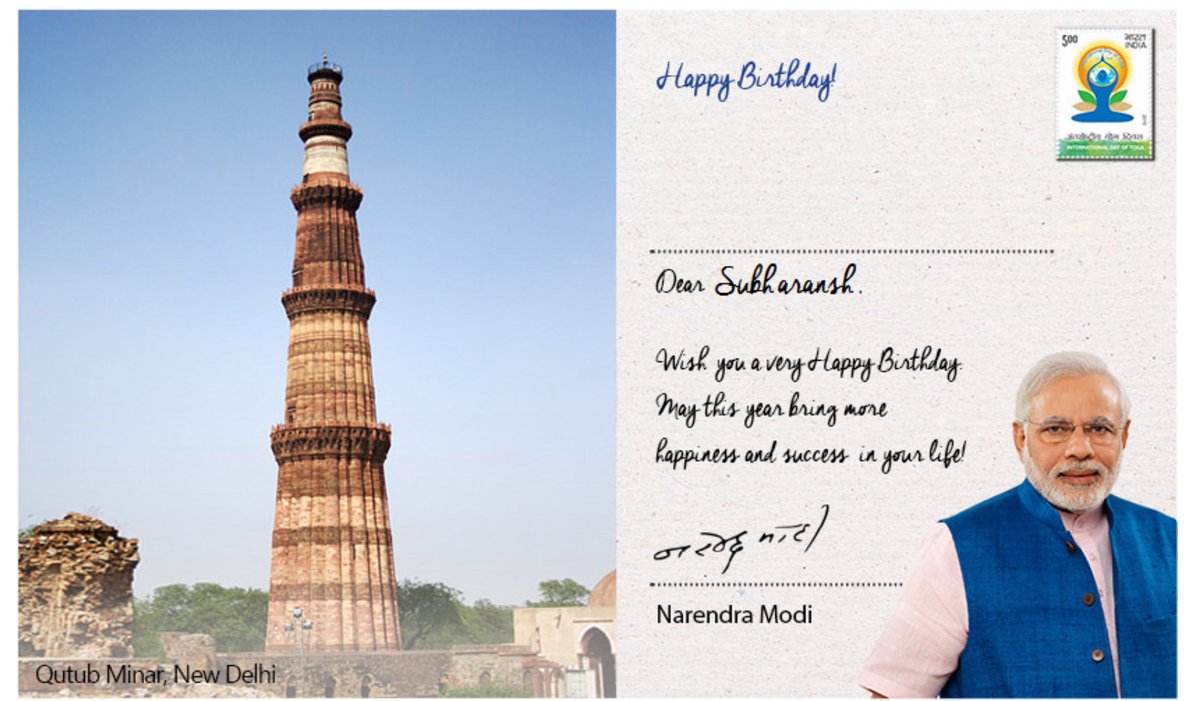 Happy Birthday!
5.00
भारत
INDIA
अंतर्राष्ट्रीय योग दिवस
INTERNATIONAL DAY OF YOGA
Dear Subharansh.
Wish you a very Happy Birthday.
May this year bring more
happiness and success in your life!
नरेन्द्र मोदी
Narendra Modi
Qutub Minar, New Delhi